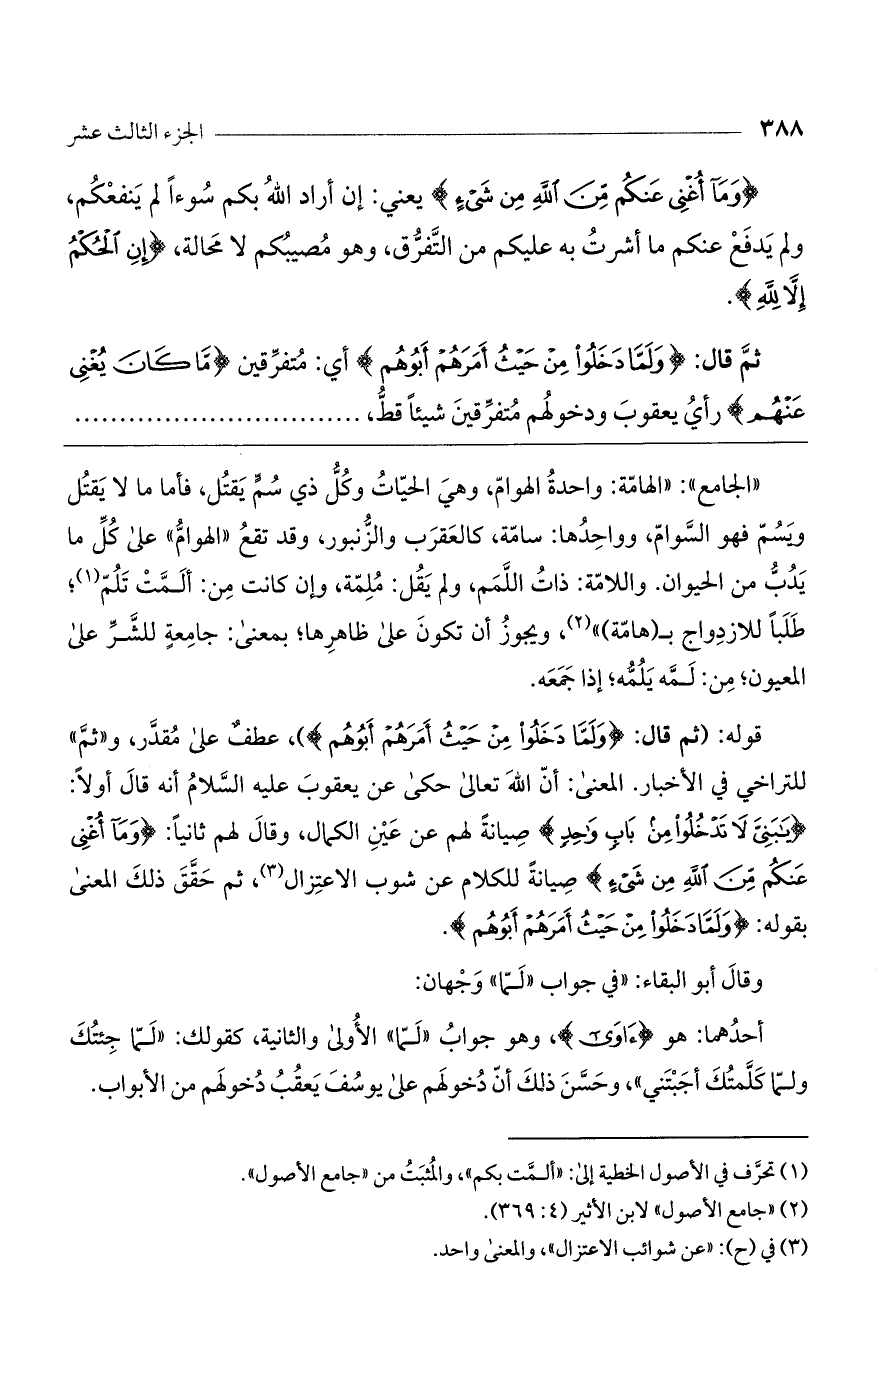 ٣٨٨ الجزء الثالث عشر
﴿وَمَآ أُغْنِى عَنكُم مِّنَ ٱللَّهِ مِن شَىْءٍ﴾ يعني: إن أراد اللهُ بكم سُوءاً لم يَنفعْكُم،
ولم يَدفَعْ عنكم ما أشرتُ به عليكم من التَّفرُّق، وهو مُصيبُكم لا محَالة، ﴿إِنِ ٱلْحُكْمُ
إِلَّا لِلَّهِ﴾.
ثمَّ قال: ﴿وَلَمَّا دَخَلُوا۟ مِنْ حَيْثُ أَمَرَهُمْ أَبُوهُم﴾ أي: مُتفرِّقين ﴿مَّا كَانَ يُغْنِى
عَنْهُم﴾ رأيُ يعقوبَ ودخولُهم مُتفرِّقينَ شيئاً قطُّ، ................................
«الجامع»: «الهامّة: واحدةُ الهوامّ، وهيَ الحيّاتُ وكُلُّ ذي سُمٍّ يَقتُل، فأما ما لا يَقتُل
ويَسُمّ فهو السَّوامّ، وواحِدُها: سامّة، كالعَقرَب والزُّنبور، وقد تقعُ «الهوامُّ» علىٰ كُلِّ ما
يَدُبُّ من الحيوان. واللامّة: ذاتُ اللَّمَم، ولم يَقُل: مُلِمّة، وإن كانت مِن: ألَـمَّتْ تَلُمّ(١)؛
طَلَباً للازدِواج بـ(هامّة)»(٢)، ويجوزُ أن تكونَ علىٰ ظاهرِها؛ بمعنىٰ: جامِعةٍ للشَّـرِّ علىٰ
المعيون؛ مِن: لَـمَّه يَلُمُّه؛ إذا جَمَعَه.
قوله: (ثم قال: ﴿وَلَمَّا دَخَلُوا۟ مِنْ حَيْثُ أَمَرَهُمْ أَبُوهُم﴾)، عطفٌ علىٰ مُقدَّر، و«ثمَّ»
للتراخي في الأخبار. المعنىٰ: أنّ اللهَ تعالىٰ حكىٰ عن يعقوبَ عليه السَّلامُ أنه قالَ أولاً:
﴿يَٰبَنِىَّ لَا تَدْخُلُوا۟ مِنۢ بَابٍ وَٰحِدٍ﴾ صِيانةً لهم عن عَيْنِ الكمال، وقالَ لهم ثانياً: ﴿وَمَآ أُغْنِى
عَنكُم مِّنَ ٱللَّهِ مِن شَىْءٍ﴾ صِيانةً للكلام عن شوب الاعتِزال(٣)، ثم حَقَّقَ ذلكَ المعنىٰ
بقوله: ﴿وَلَمَّا دَخَلُوا۟ مِنْ حَيْثُ أَمَرَهُمْ أَبُوهُم﴾.
وقالَ أبو البقاء: «في جواب «لَـمّا» وَجْهان:
أحدُهما: هو ﴿ءَاوَىٰٓ﴾، وهو جوابُ «لَـمّا» الأُولىٰ والثانية، كقولك: «لَـمّا جِئتُكَ
ولـمّا كَلَّمتُكَ أجَبْتَني»، وحَسَّنَ ذلكَ أنّ دُخولَهم علىٰ يوسُفَ يَعقُبُ دُخولَهم من الأبواب.
(١) تحرَّف في الأصول الخطية إلىٰ: «ألـمَّت بكم»، والمُثبَتُ من «جامع الأصول».
(٢) «جامع الأصول» لابن الأثير (٤: ٣٦٩).
(٣) في (ح): «عن شوائب الاعتزال»، والمعنىٰ واحد.